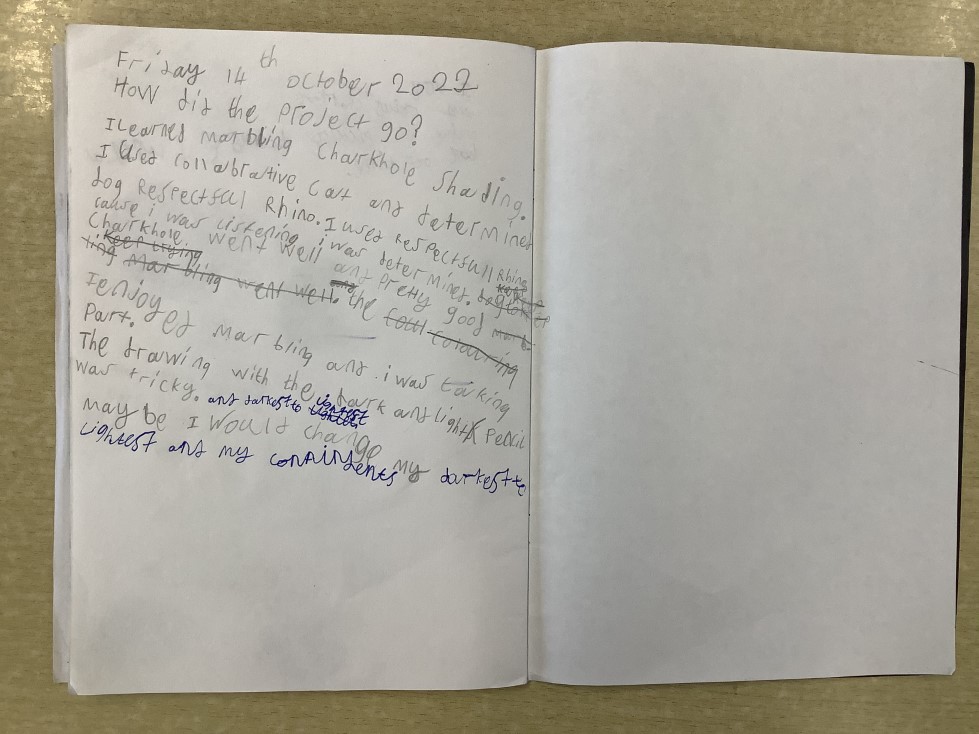 Friday 14th october 2022
How did the project go?
I Learned marbling Charkhole Shading.
I Used collabrative Cat and determined
dog Respectful Rhino. I used Respectfull Rhino
cause i was Listening i was determined.
Charkhole went well and Pretty good
keep trying
ling marbling went well. the colouring
I enjoyed marbling and i was tarking
Part.
The drawing with the dark and light Pencil
was tricky. and darkest to lightest
may be I would change my darkest to
Lightest and my